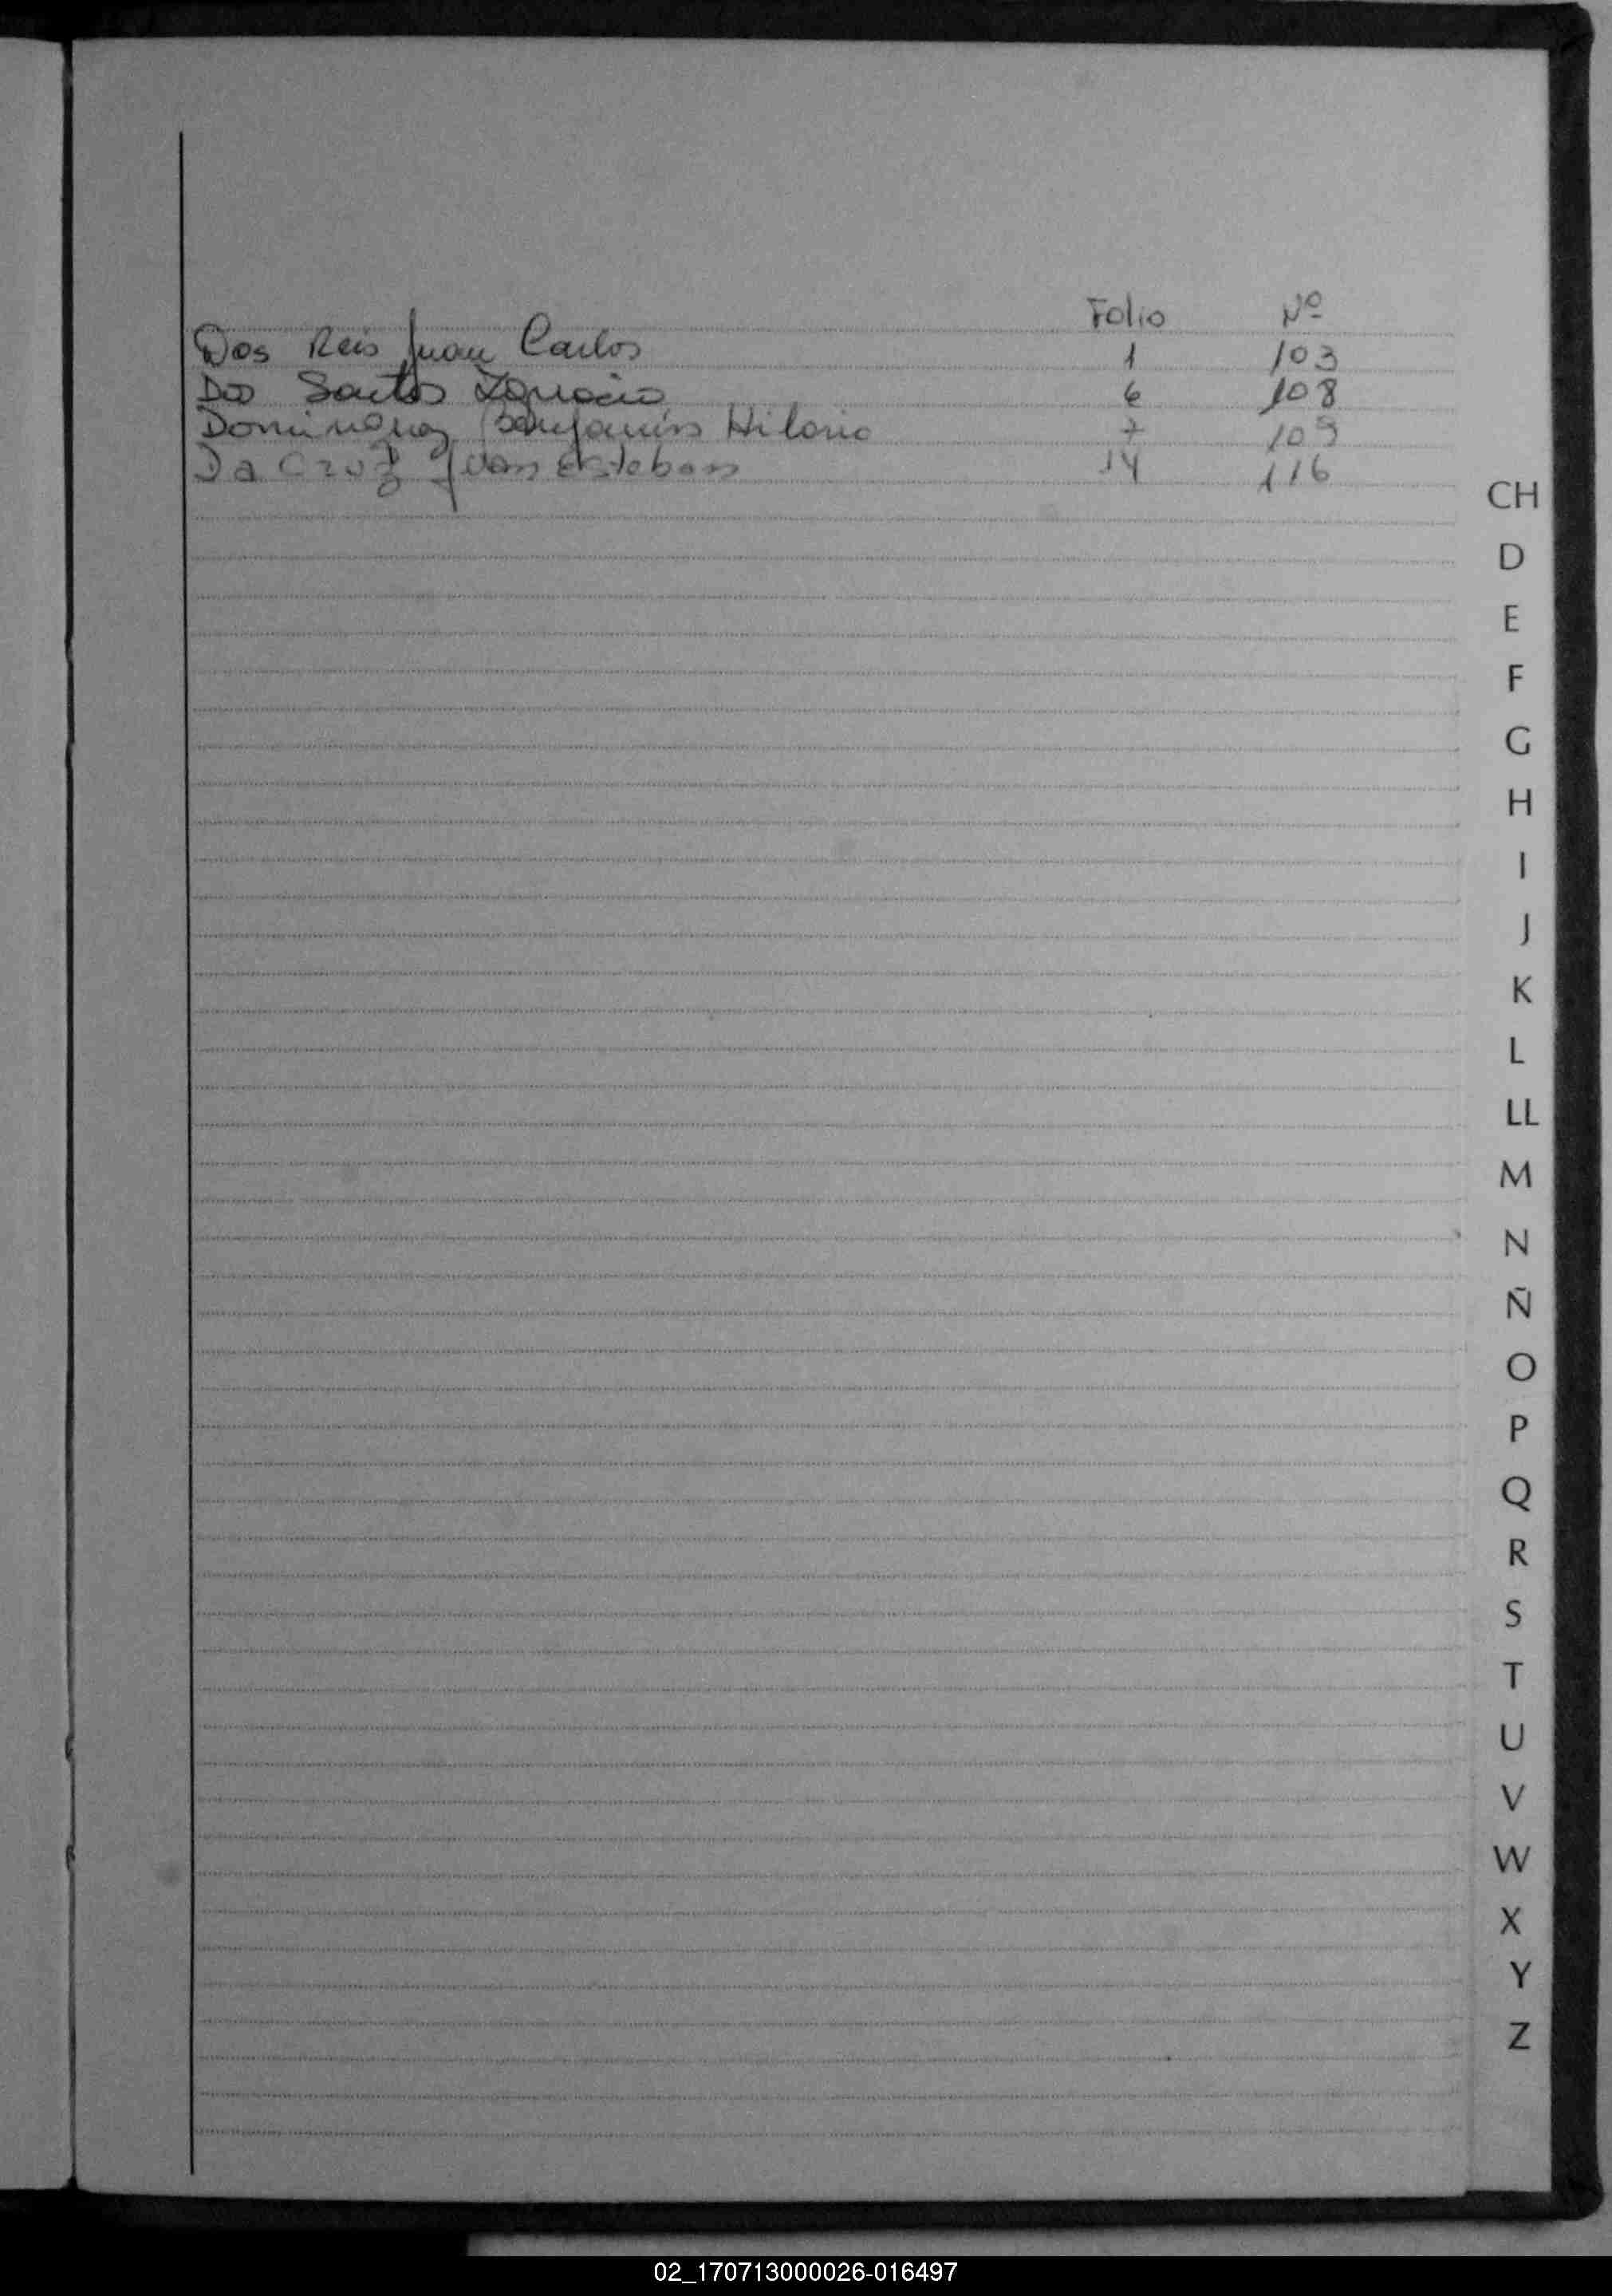 Folio Nº
Dos Reis Juan Carlos 1 103
Dos Santos Ignacio 6 108
Dominguez Benjamin Hilario 7 109
Da Cruz Juan Esteban 14 116
CH
D
E
F
G
H
I
J
K
L
LL
M
N
Ñ
O
P
Q
R
S
T
U
V
W
X
Y
Z
02_170713000026-016497